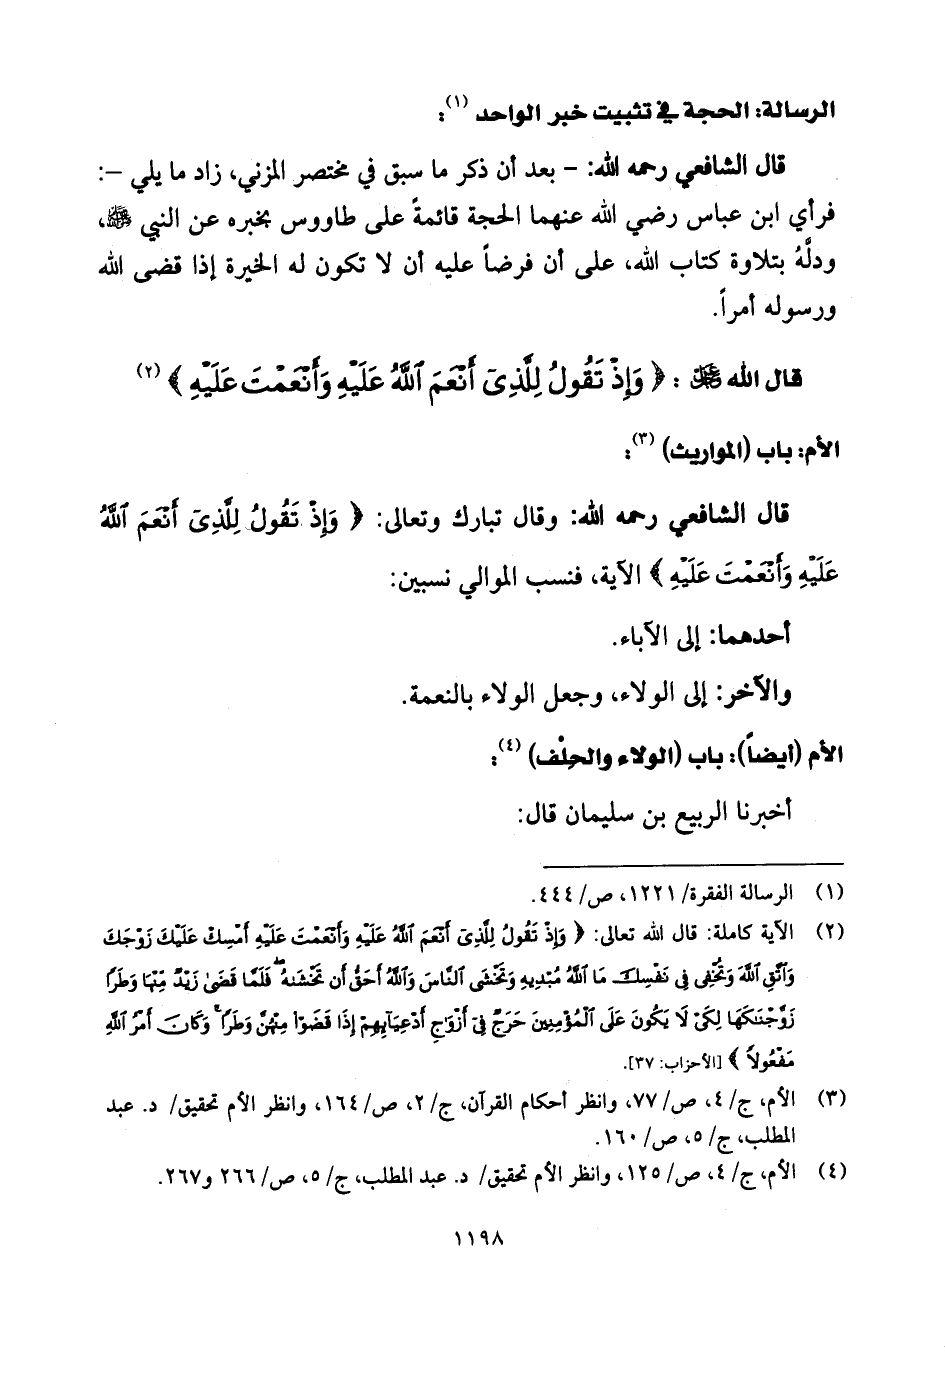 الرسالة: الحجة في تثبيت خبر الواحد (١):
قال الشافعي رحمه الله: – بعد أن ذكر ما سبق في مختصر المزني، زاد ما يلي –:
فرأي ابن عباس رضي الله عنهما الحجة قائمةً على طاووس بخبره عن النبي ﷺ،
ودلَّهُ بتلاوة كتاب الله، على أن فرضاً عليه أن لا تكون له الخيرة إذا قضى الله
ورسوله أمراً.
قال الله ﷻ : ﴿ وَإِذْ تَقُولُ لِلَّذِىٓ أَنْعَمَ ٱللَّهُ عَلَيْهِ وَأَنْعَمْتَ عَلَيْهِ ﴾ (٢)
الأم: باب (المواريث) (٣):
قال الشافعي رحمه الله: وقال تبارك وتعالى: ﴿ وَإِذْ تَقُولُ لِلَّذِىٓ أَنْعَمَ ٱللَّهُ
عَلَيْهِ وَأَنْعَمْتَ عَلَيْهِ ﴾ الآية، فنسب الموالي نسبين:
أحدهما: إلى الآباء.
والآخر: إلى الولاء، وجعل الولاء بالنعمة.
الأم (أيضاً): باب (الولاء والحِلْف) (٤):
أخبرنا الربيع بن سليمان قال:
(١) الرسالة الفقرة/ ١٢٢١، ص/ ٤٤٤.
(٢) الآية كاملة: قال الله تعالى: ﴿ وَإِذْ تَقُولُ لِلَّذِىٓ أَنْعَمَ ٱللَّهُ عَلَيْهِ وَأَنْعَمْتَ عَلَيْهِ أَمْسِكْ عَلَيْكَ زَوْجَكَ
وَٱتَّقِ ٱللَّهَ وَتُخْفِى فِى نَفْسِكَ مَا ٱللَّهُ مُبْدِيهِ وَتَخْشَى ٱلنَّاسَ وَٱللَّهُ أَحَقُّ أَن تَخْشَىٰهُ ۖ فَلَمَّا قَضَىٰ زَيْدٌ مِّنْهَا وَطَرًا
زَوَّجْنَٰكَهَا لِكَىْ لَا يَكُونَ عَلَى ٱلْمُؤْمِنِينَ حَرَجٌ فِىٓ أَزْوَٰجِ أَدْعِيَآئِهِمْ إِذَا قَضَوْا۟ مِنْهُنَّ وَطَرًا ۚ وَكَانَ أَمْرُ ٱللَّهِ
مَفْعُولًا ﴾ [الأحزاب: ٣٧].
(٣) الأم، ج/ ٤، ص/ ٧٧، وانظر أحكام القرآن، ج/ ٢، ص/ ١٦٤، وانظر الأم تحقيق/ د. عبد
المطلب، ج/ ٥، ص/ ١٦٠.
(٤) الأم، ج/ ٤، ص/ ١٢٥، وانظر الأم تحقيق/ د. عبد المطلب، ج/ ٥، ص/ ٢٦٦ و٢٦٧.
١١٩٨